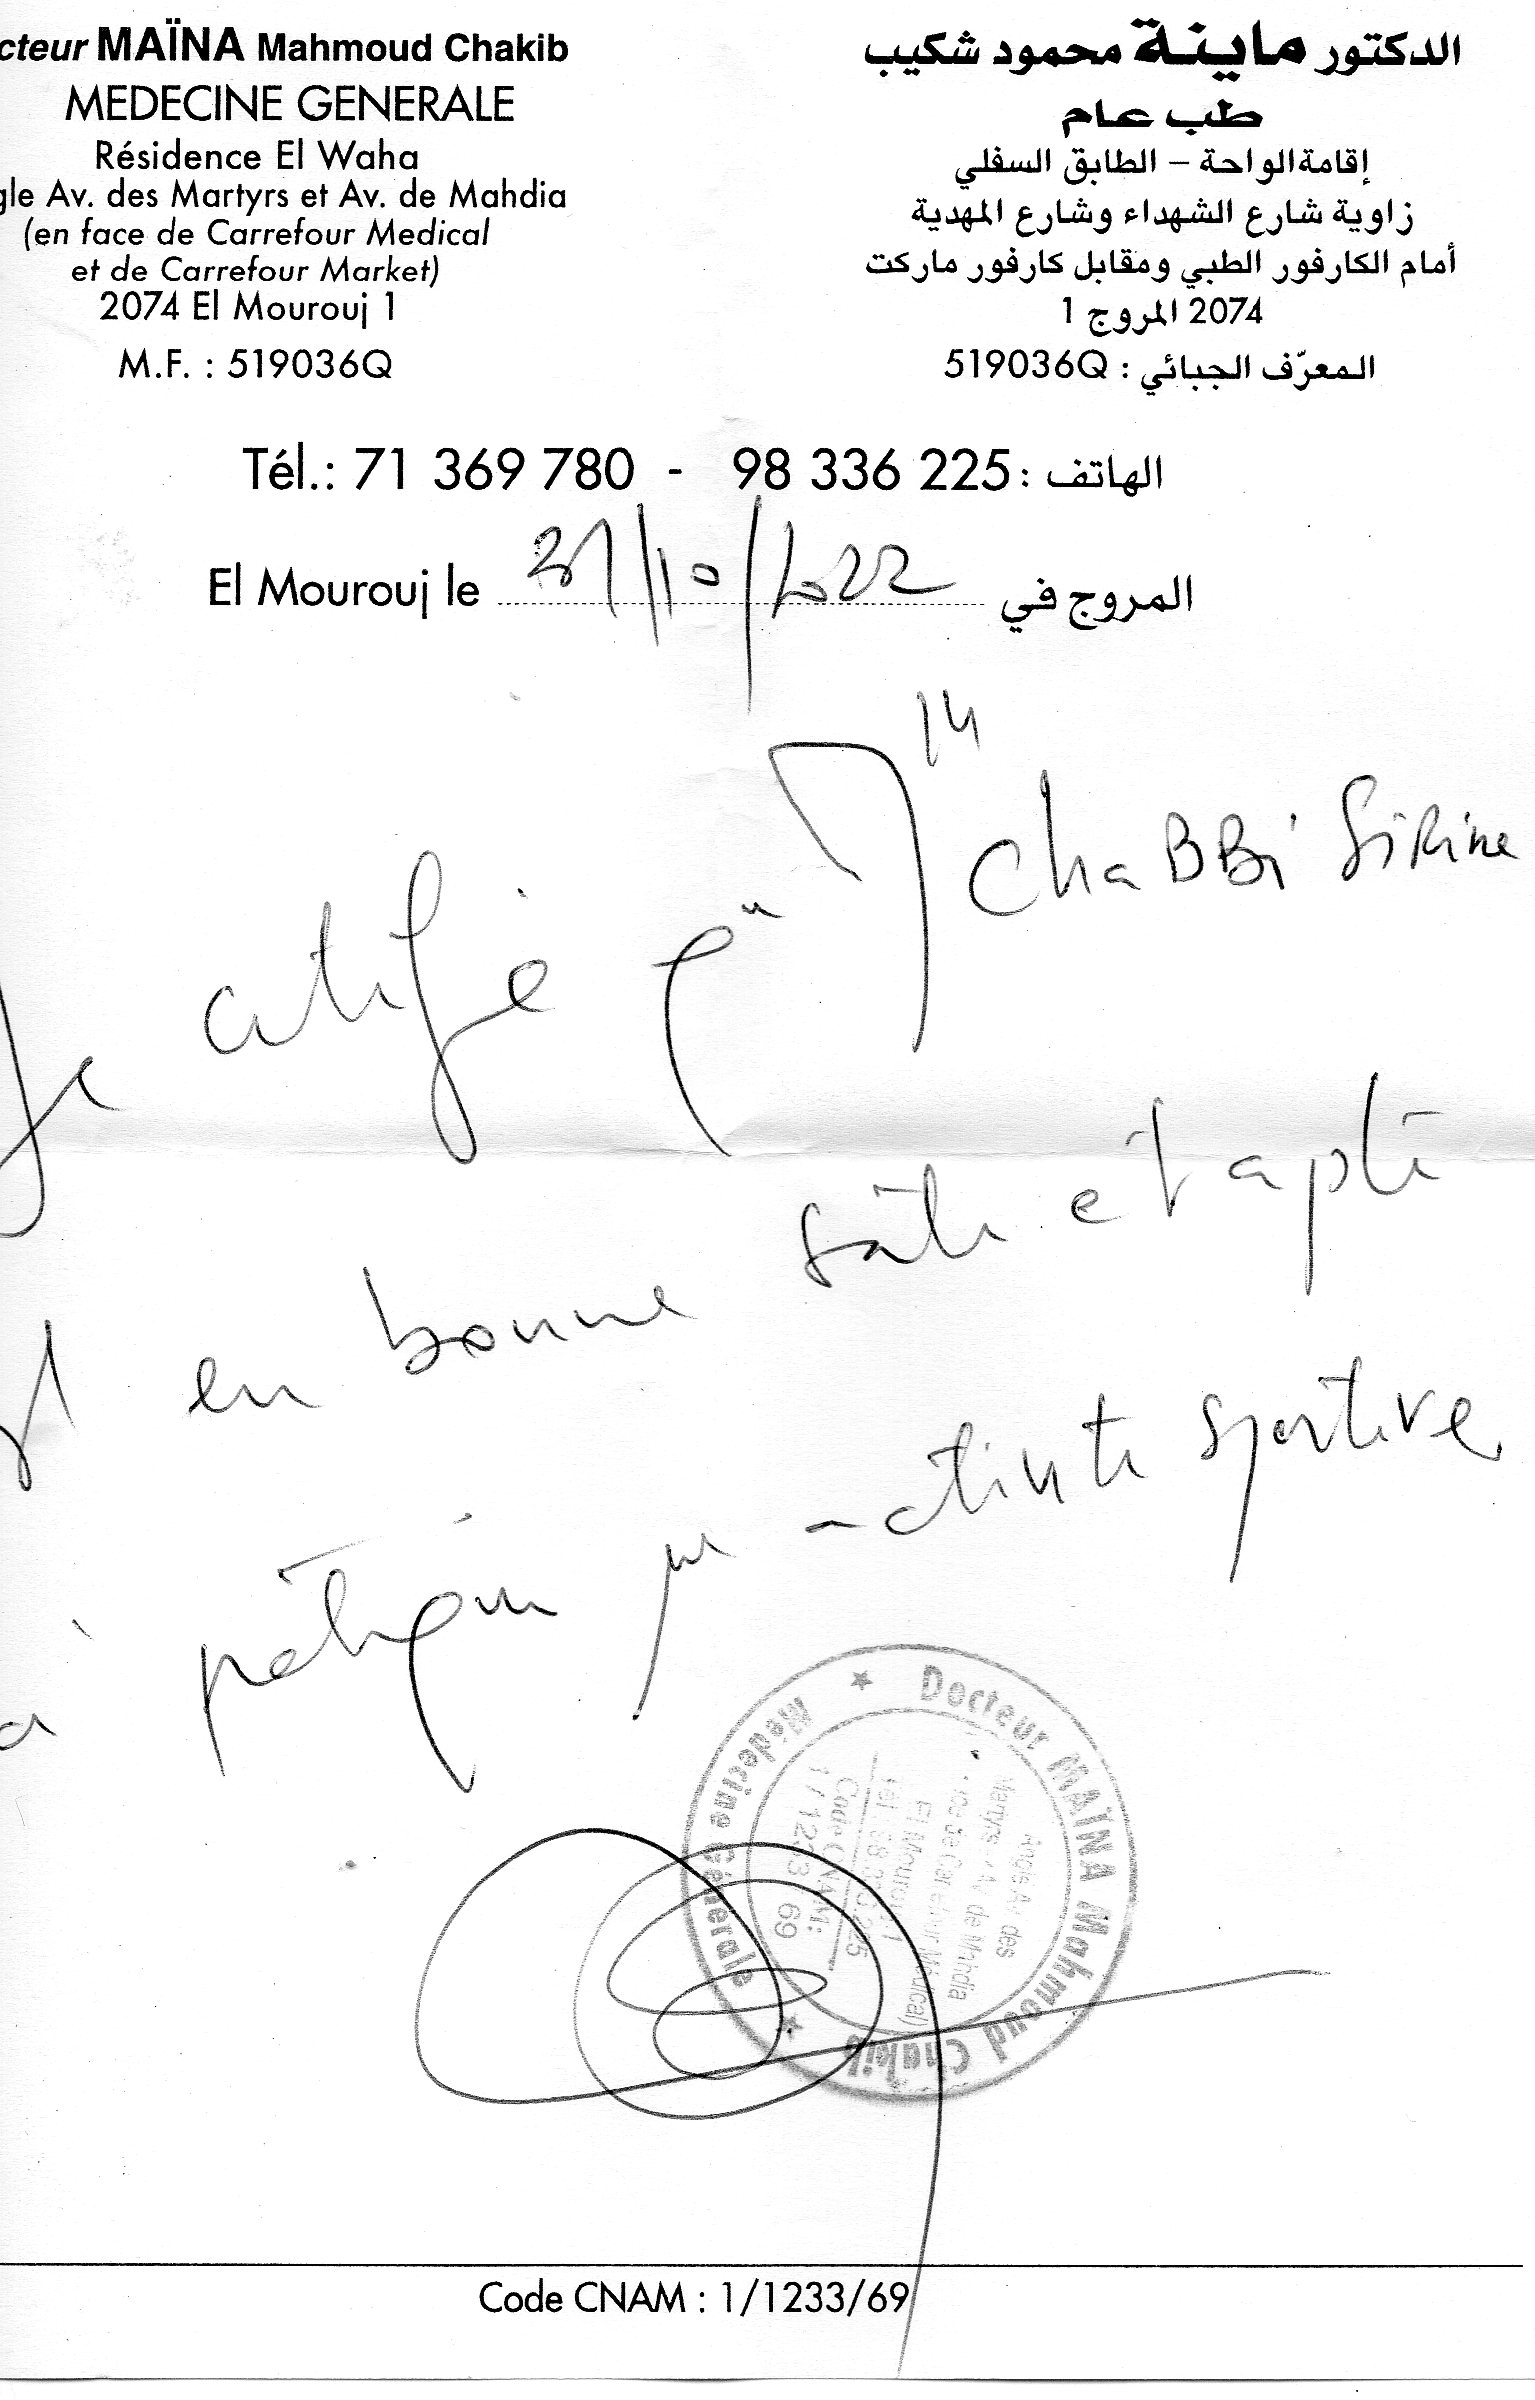 cteur MAÏNA Mahmoud Chakib
MEDECINE GENERALE
Résidence El Waha
gle Av. des Martyrs et Av. de Mahdia
(en face de Carrefour Medical
et de Carrefour Market)
2074 El Mourouj 1
M.F. : 519036Q
الدكتور ماينة محمود شكيب
طب عام
إقامة الواحة – الطابق السفلي
زاوية شارع الشهداء وشارع المهدية
أمام الكارفور الطبي ومقابل كارفور ماركت
2074 المروج 1
المعرّف الجبائي : 519036Q
Tél.: 71 369 780 - 98 336 225 : الهاتف
El Mourouj le 31/10/2022 المروج في
Je certifie que Chabbi Sirine
est en bonne santé et apte
à pratiquer une activité sportive
Docteur MAÏNA Mahmoud Chakib
Médecine Générale
Angle Av. des
Martyrs et Av. de Mahdia
El Mourouj 1
Tél. 98.336.225
Code CNAM:
1/1233/69
Code CNAM : 1/1233/69